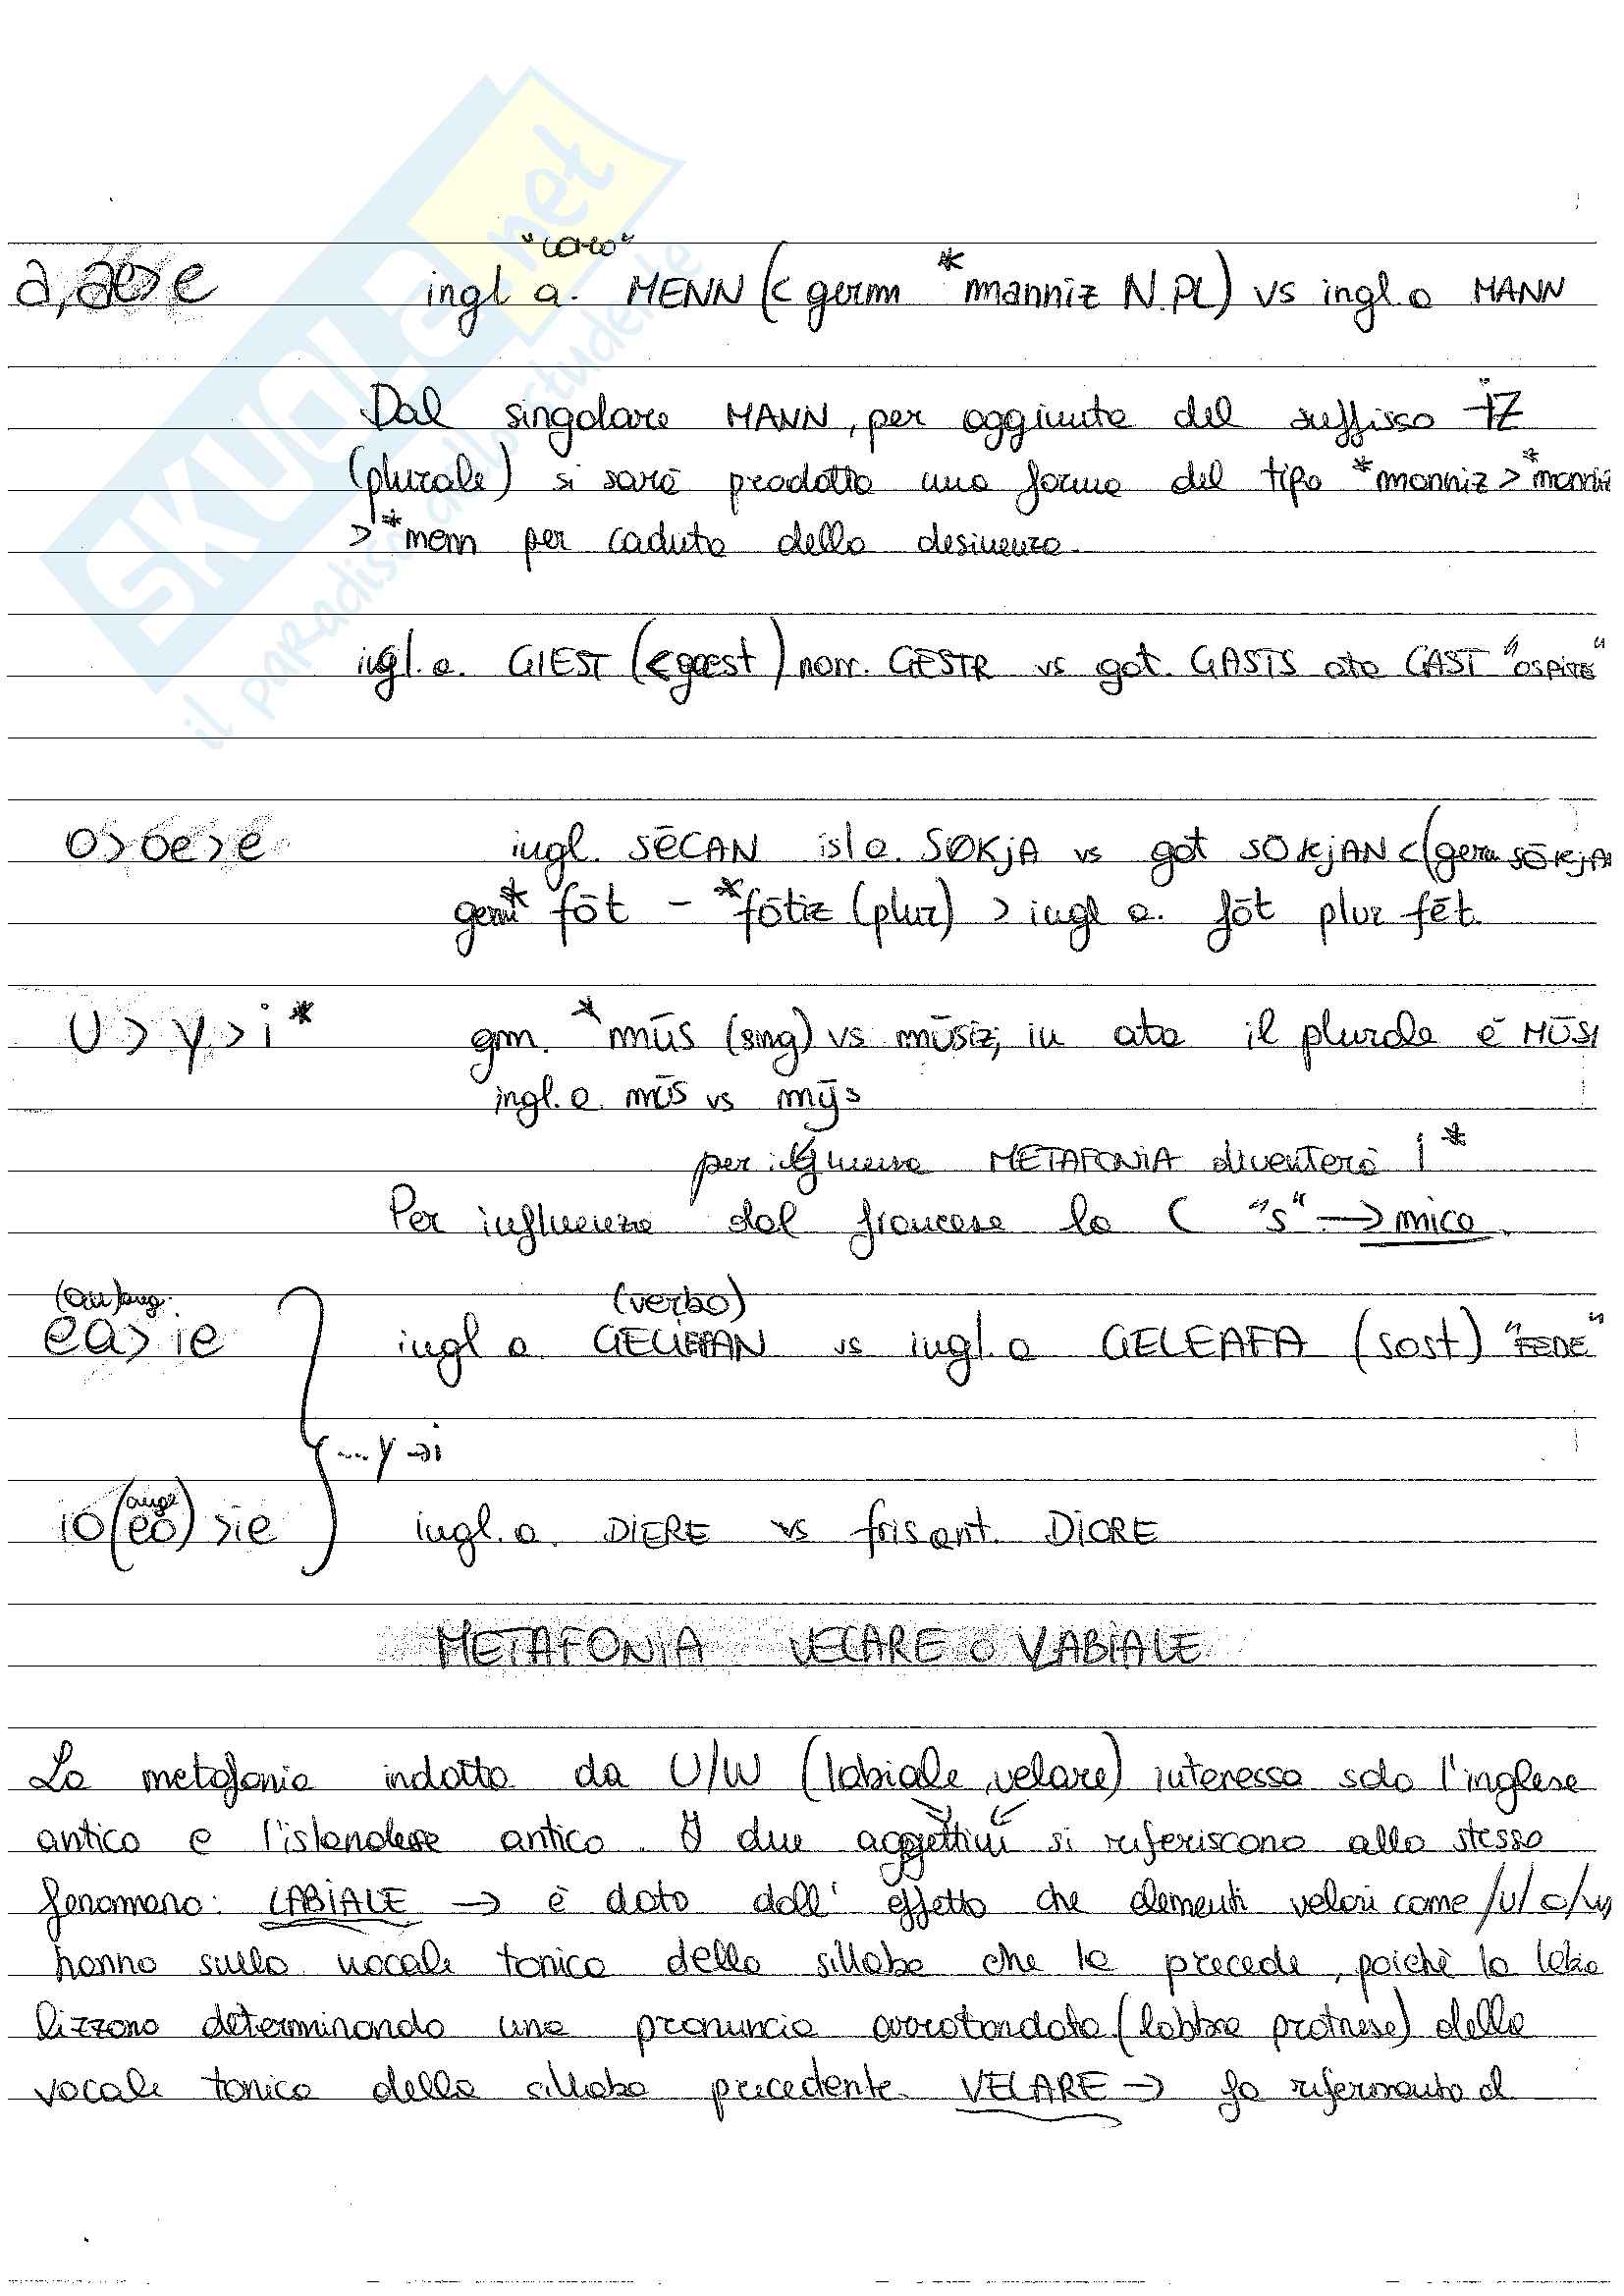 SKUOLA.net
il paradiso dello studente
a, ae > e ingl a. MENN (< germ *manniz N.PL) vs ingl.a MANN
Dal singolare MANN, per aggiunta del suffisso -iZ
(plurale) si sarà prodotta una forma del tipo *manniz > *manni
> *menn per caduta della desinenza.
ingl.a. GIEST (< gaest) norr. GESTR vs got. GASTS ata GAST "OSPITE"
o > oe > e ingl. SĒCAN isl a. SØKJA vs got SOKJAN < (germ SŌKJAN
germ* fōt - *fōtiz (plur) > ingl a. fōt plur fēt.
U > y > i* gm. *mūs (sing) vs mūsiz, in ata il plurale è MŪSI
ingl.a. mūs vs mȳs
per METAFONIA diventerà i*
Per influenza dal francese la C "s" → mice.
(au) ang. (verbo)
ea > ie ingl a. GELIEFAN vs ingl.a GELEAFA (sost) "FEDE"
... y → i
io (eo) > ie ingl.a. DIERE vs fris ant. DIORE
METAFONIA VELARE O LABIALE
La metafonia indotta da U/W (labiale, velare) interessa solo l'inglese
antico e l'islandese antico. I due aggettivi si riferiscono allo stesso
fenomeno: LABIALE → è dato dall' effetto che elementi velari come /u/o/w/
hanno sulla vocale tonica della sillaba che la precede, poichè la labia
lizzano determinando una pronuncia arrotondata (labbra protruse) della
vocale tonica della sillaba precedente. VELARE → fa riferimento al